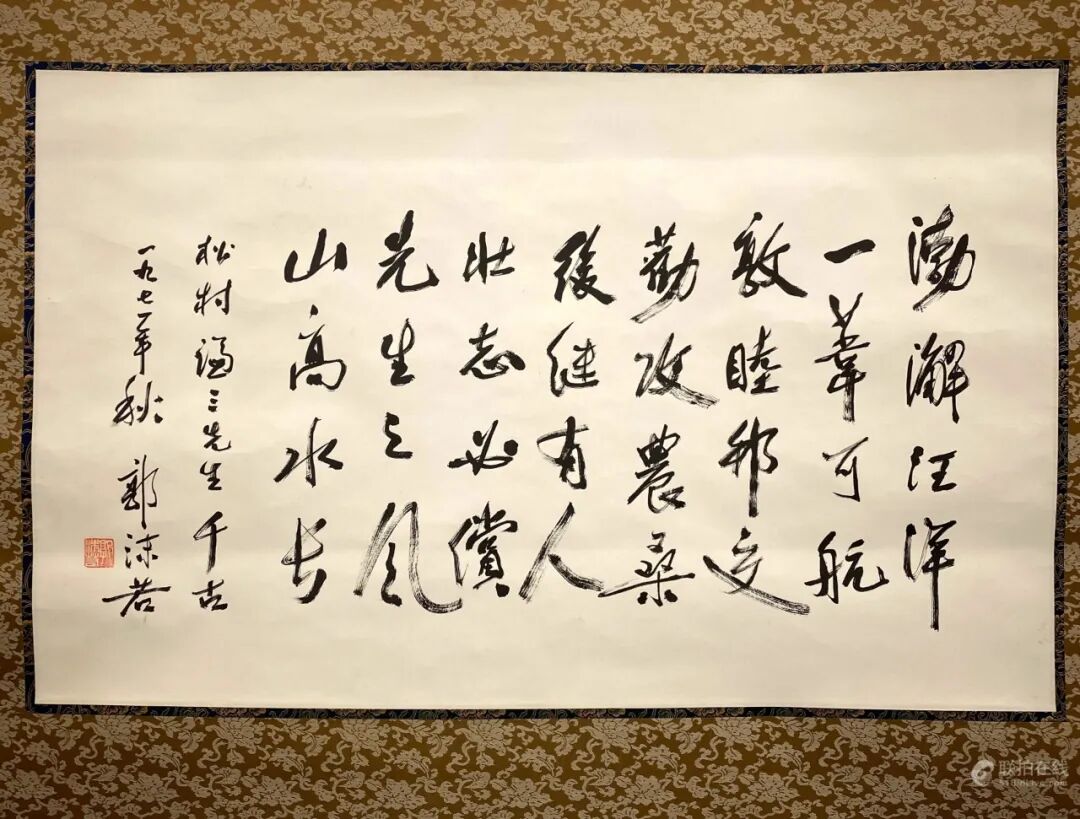 渤澥汪洋
一葦可航
敦睦邦交
勸攻農桑
後继有人
壮志必償
先生之风
山高水长
松村謙三先生千古
一九七一年秋
郭沫若
联拍在线